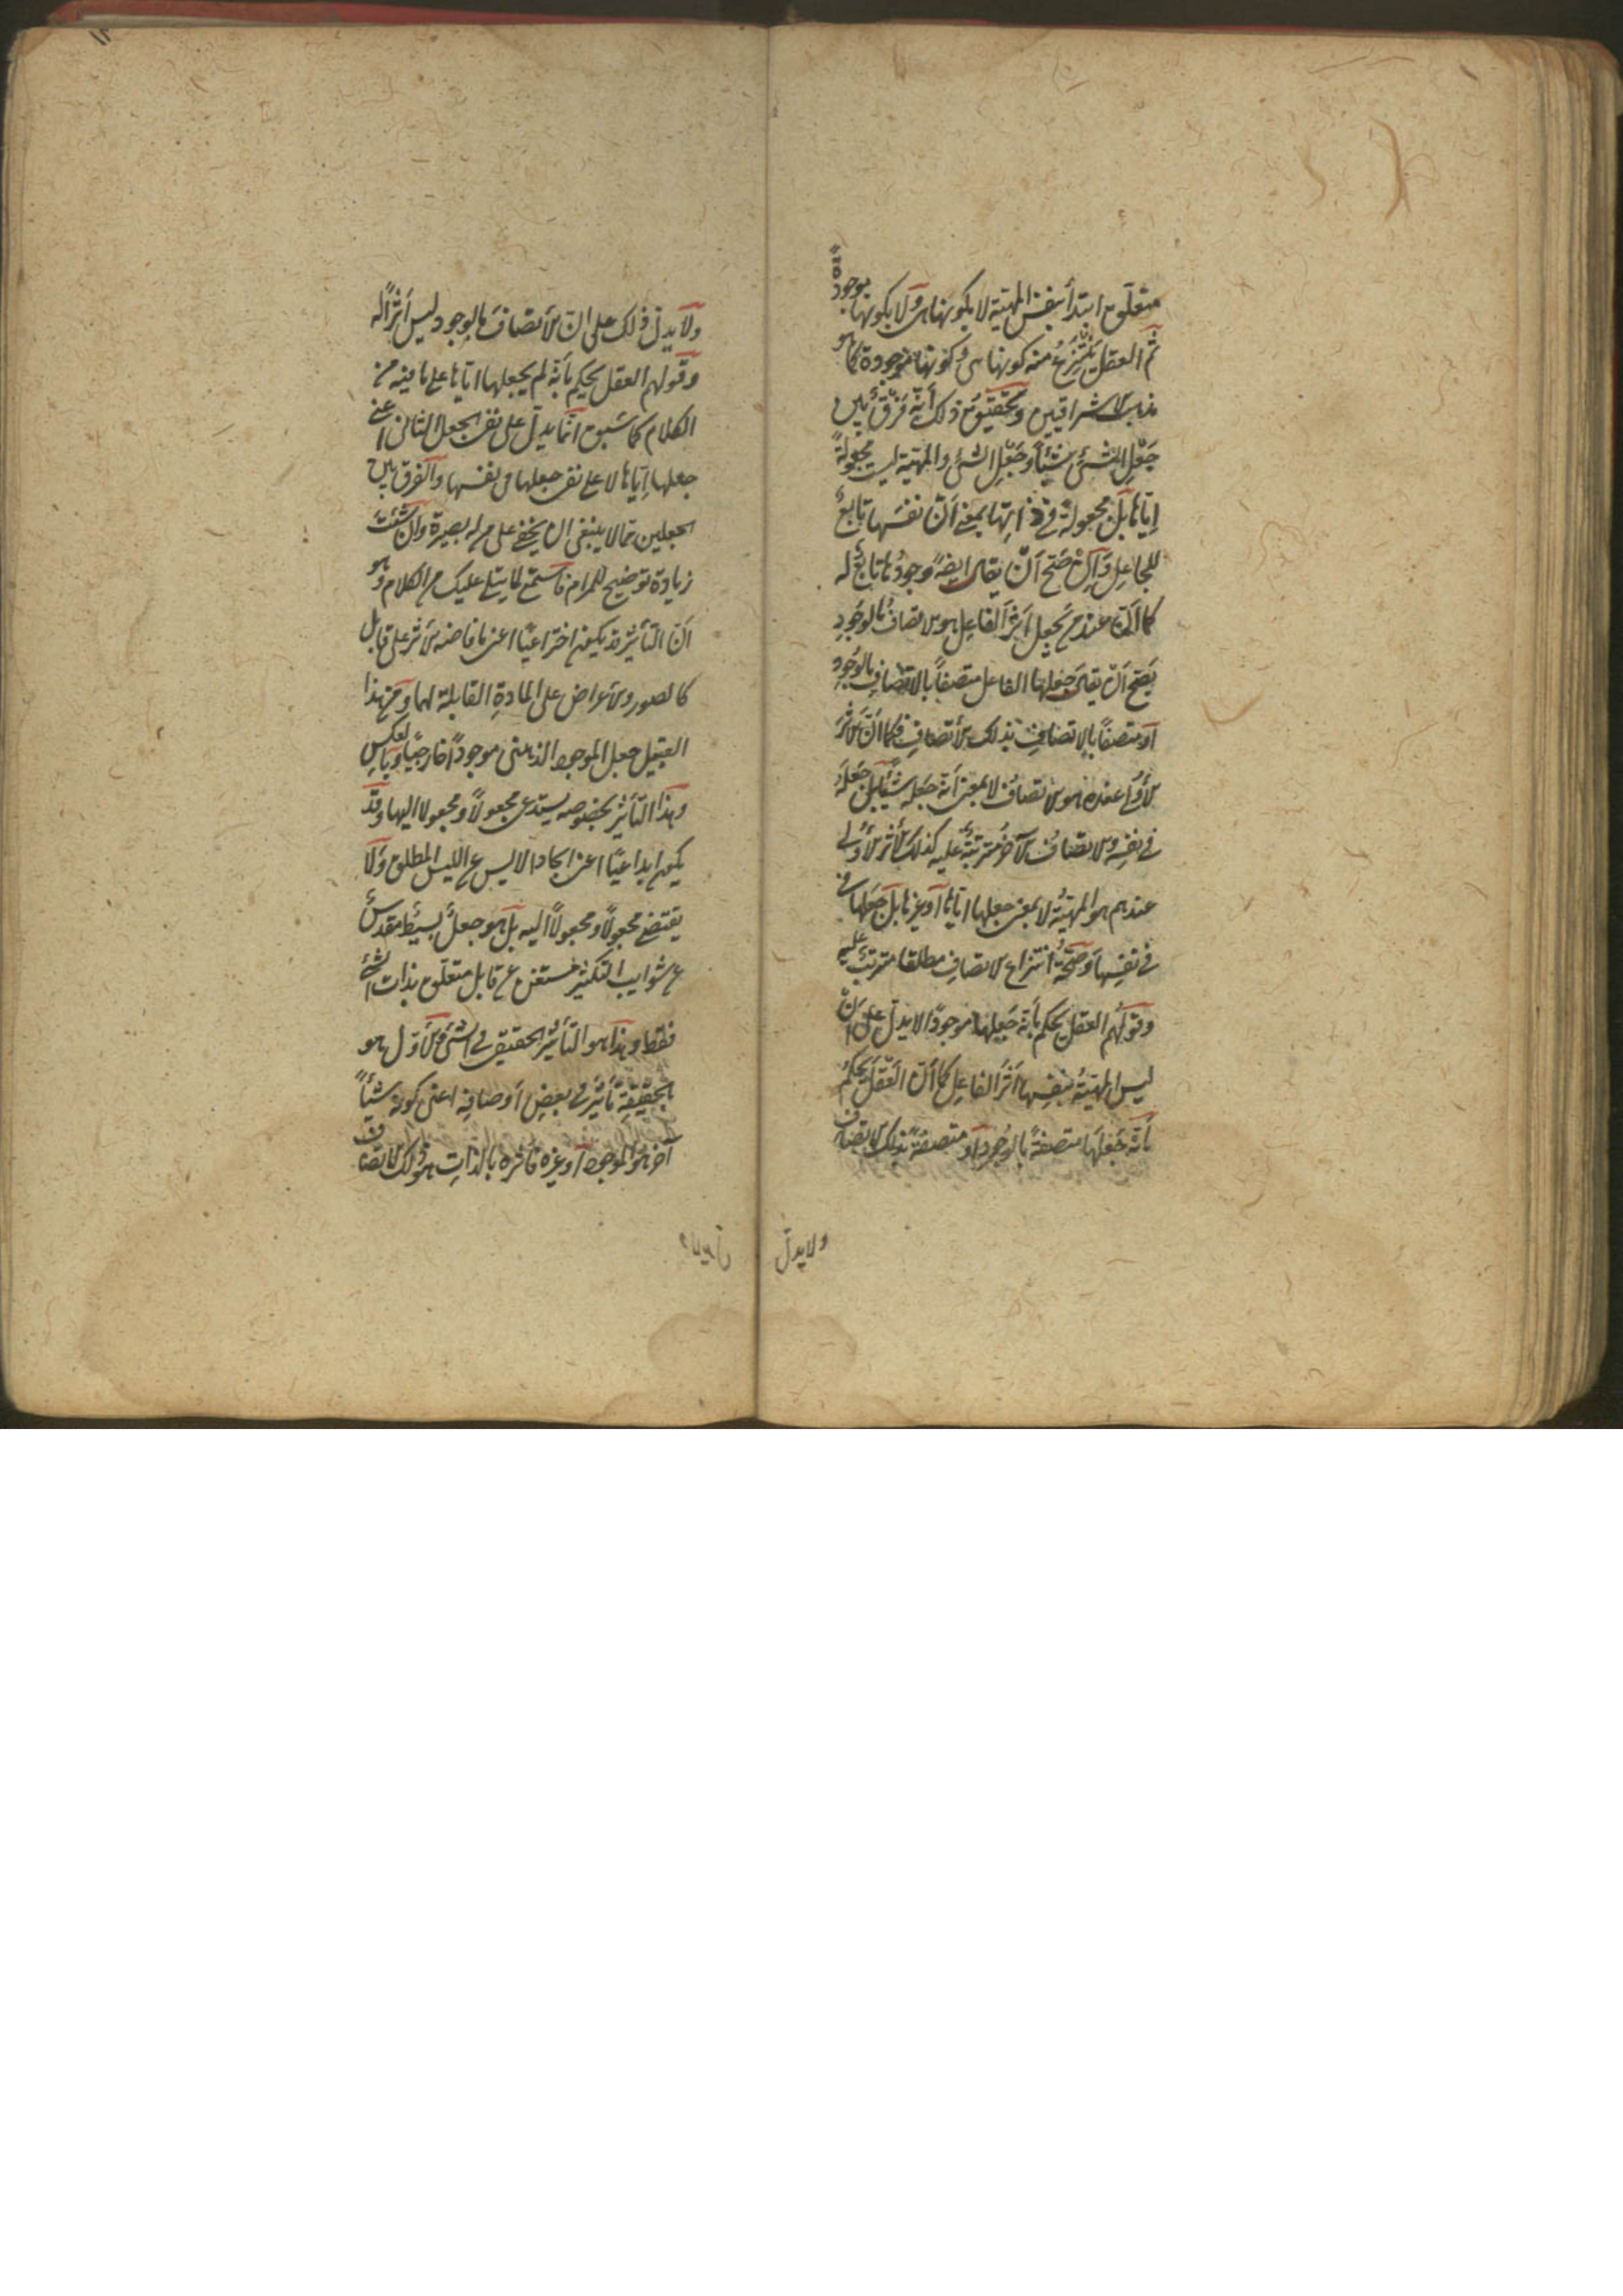 متعلق ابتدأ بنفس المهية لا بكونها هى ولا بكونها موجودة
ثم العقل ينتزع منه كونها هى وكونها موجودة كما هو
مذهب الاشراقيين وتحقيق ذلك أنه فرق بين
جعل الشئ شيئا وجعل الشئ والمهية ليست مجعولة
إياها بل مجعولة فى ذاتها بمعنى أن نفسها تابع
للجاعل وإن صح أن يقال ايضا وجودها تابع له
كما أن عند من يجعل أثر الفاعل هو الاتصاف بالوجود
يصح أن يقال جعلها الفاعل متصفا بالاتصاف بالوجود
أو متصفا بالاتصاف بذلك الاتصاف فكما أن الأثر
الأولى عنده هو الاتصاف لا بمعنى أنه جعله شيئا بل جعله
فى نفسه والاتصاف الآخر مترتبة عليه كذلك الأثر الأولى
عندهم هو المهية لا بمعنى جعلها اياها أو غيرها بل جعلها فى
فى نفسها وصحة انتزاع الاتصاف مطلقا مترتب عليه
وقولهم العقل يحكم بأنه جعلها موجودا لا يدل على أن
ليس المهية بنفسها أثر الفاعل كما أن العقل يحكم
بأنه جعلها متصفة بالوجود أو متصفة بذلك الاتصاف
ولا يدل
ولا يدل ذلك على ان الاتصاف بالوجود ليس أثرا له
وقولهم العقل يحكم بأنه لم يجعلها اياها على ما فيه من
الكلام كما سبق انما يدل على نفى الجعل الثانى اعنى
جعلها إياها لا على نفى جعلها فى نفسها والفرق بين
الجعلين مما لا ينبغى ان يخفى على من له بصيرة وان شئت
زيادة توضيح للمرام فاستمع لما يتلى عليك من الكلام وهو
أن التأثير قد يكون اختراعيا اعنى افاضة الاثر على قابل
كالصور والاعراض على المادة القابلة لهما ومن هذا
القبيل جعل الموجود الذهنى موجودا خارجيا وبالعكس
وهذا التأثير بخصوصه يستدعى مجعولا ومجعولا اليها وقد
يكون ابداعيا اعنى ايجاد الايس عن الليس المطلق ولا
يقتضى مجعولا ومجعولا اليه بل هو جعل بسيط مقدس
عن شوايب التكثير مستغن عن قابل متعلق بذات الشئ
فقط وهذا هو التأثير الحقيقى فى الشئ والأول هو
بالحقيقة تأثير فى بعض أوصافه اعنى كونه شيئا
آخر هو الموجود أو غيره فأثره بالذات هو ذلك الاتصاف